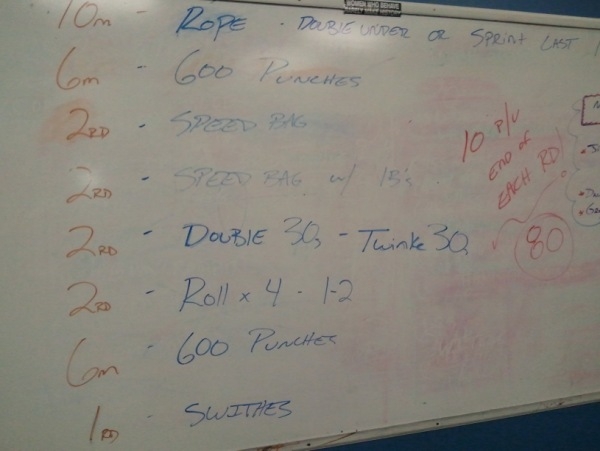 10m - ROPE . DOUBLE UNDER OR SPRINT LAST
6m - 600 PUNCHES
2RD - SPEED BAG
2RD - SPEED BAG w/ 1B's
2RD - DOUBLE 30s - Twinke 30s
2RD - Roll x 4 - 1-2
6m - 600 PUNCHES
1RD - SWITHES
10 P/U
END OF
EACH RD
80
WOMEN WHO BEHAVE
RARELY MAKE HISTORY